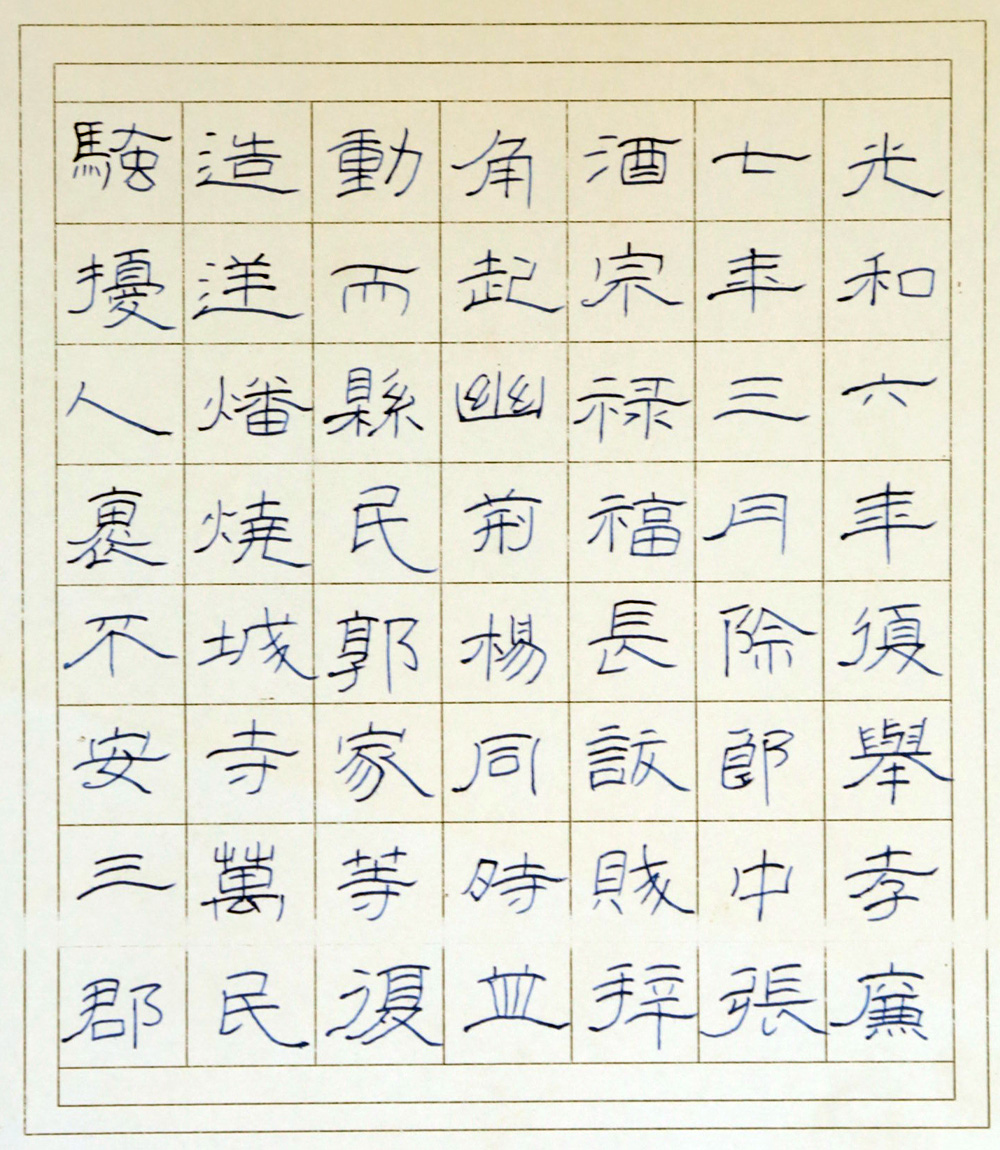 光和六年復舉孝廉
七年三月除郎中張
酒宗禄福長訞賊拜
角起幽荊楊同時並
動而縣民郭家等復
造逆燔燒城寺萬民
騷擾人裹不安三郡